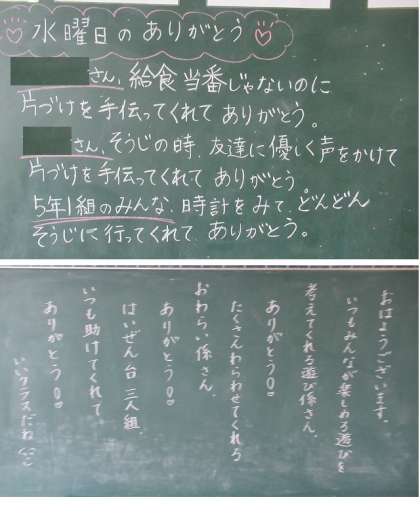 水曜日のありがとう
さん、給食当番じゃないのに
片づけを手伝ってくれてありがとう。
さん、そうじの時、友達に優しく声をかけて
片づけを手伝ってくれてありがとう。
5年1組のみんな、時計をみて、どんどん
そうじに行ってくれて、ありがとう。
おはようございます。
いつもみんなが楽しめる遊びを
考えてくれる遊び係さん、
ありがとう!!
たくさんわらわせてくれる
おわらい係さん、
ありがとう!!
はいぜん台三人組、
いつも助けてくれて、
ありがとう!!
いいクラスだね